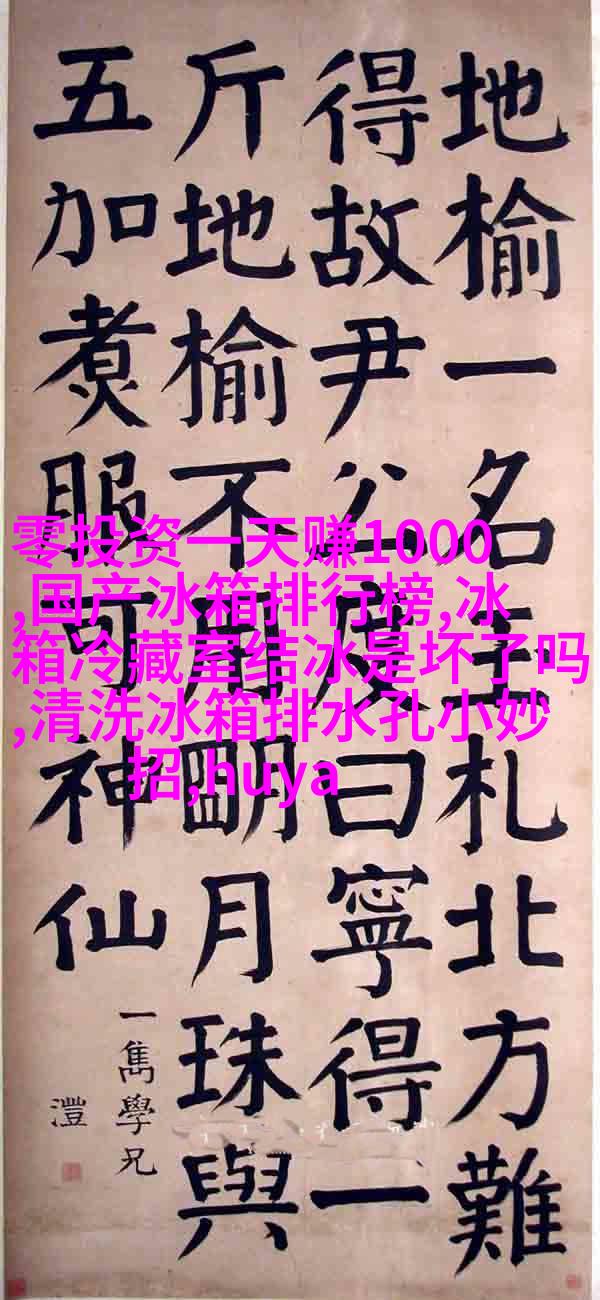 地榆一名玉札北方難
得故尹公度曰寧得一
斤地榆不用朙月珠與
五加煑服可神仙
一雋學兄
澧
零投资一天赚1000
,国产冰箱排行榜,冰
箱冷藏室结冰是坏了吗
,清洗冰箱排水孔小妙
招,huya